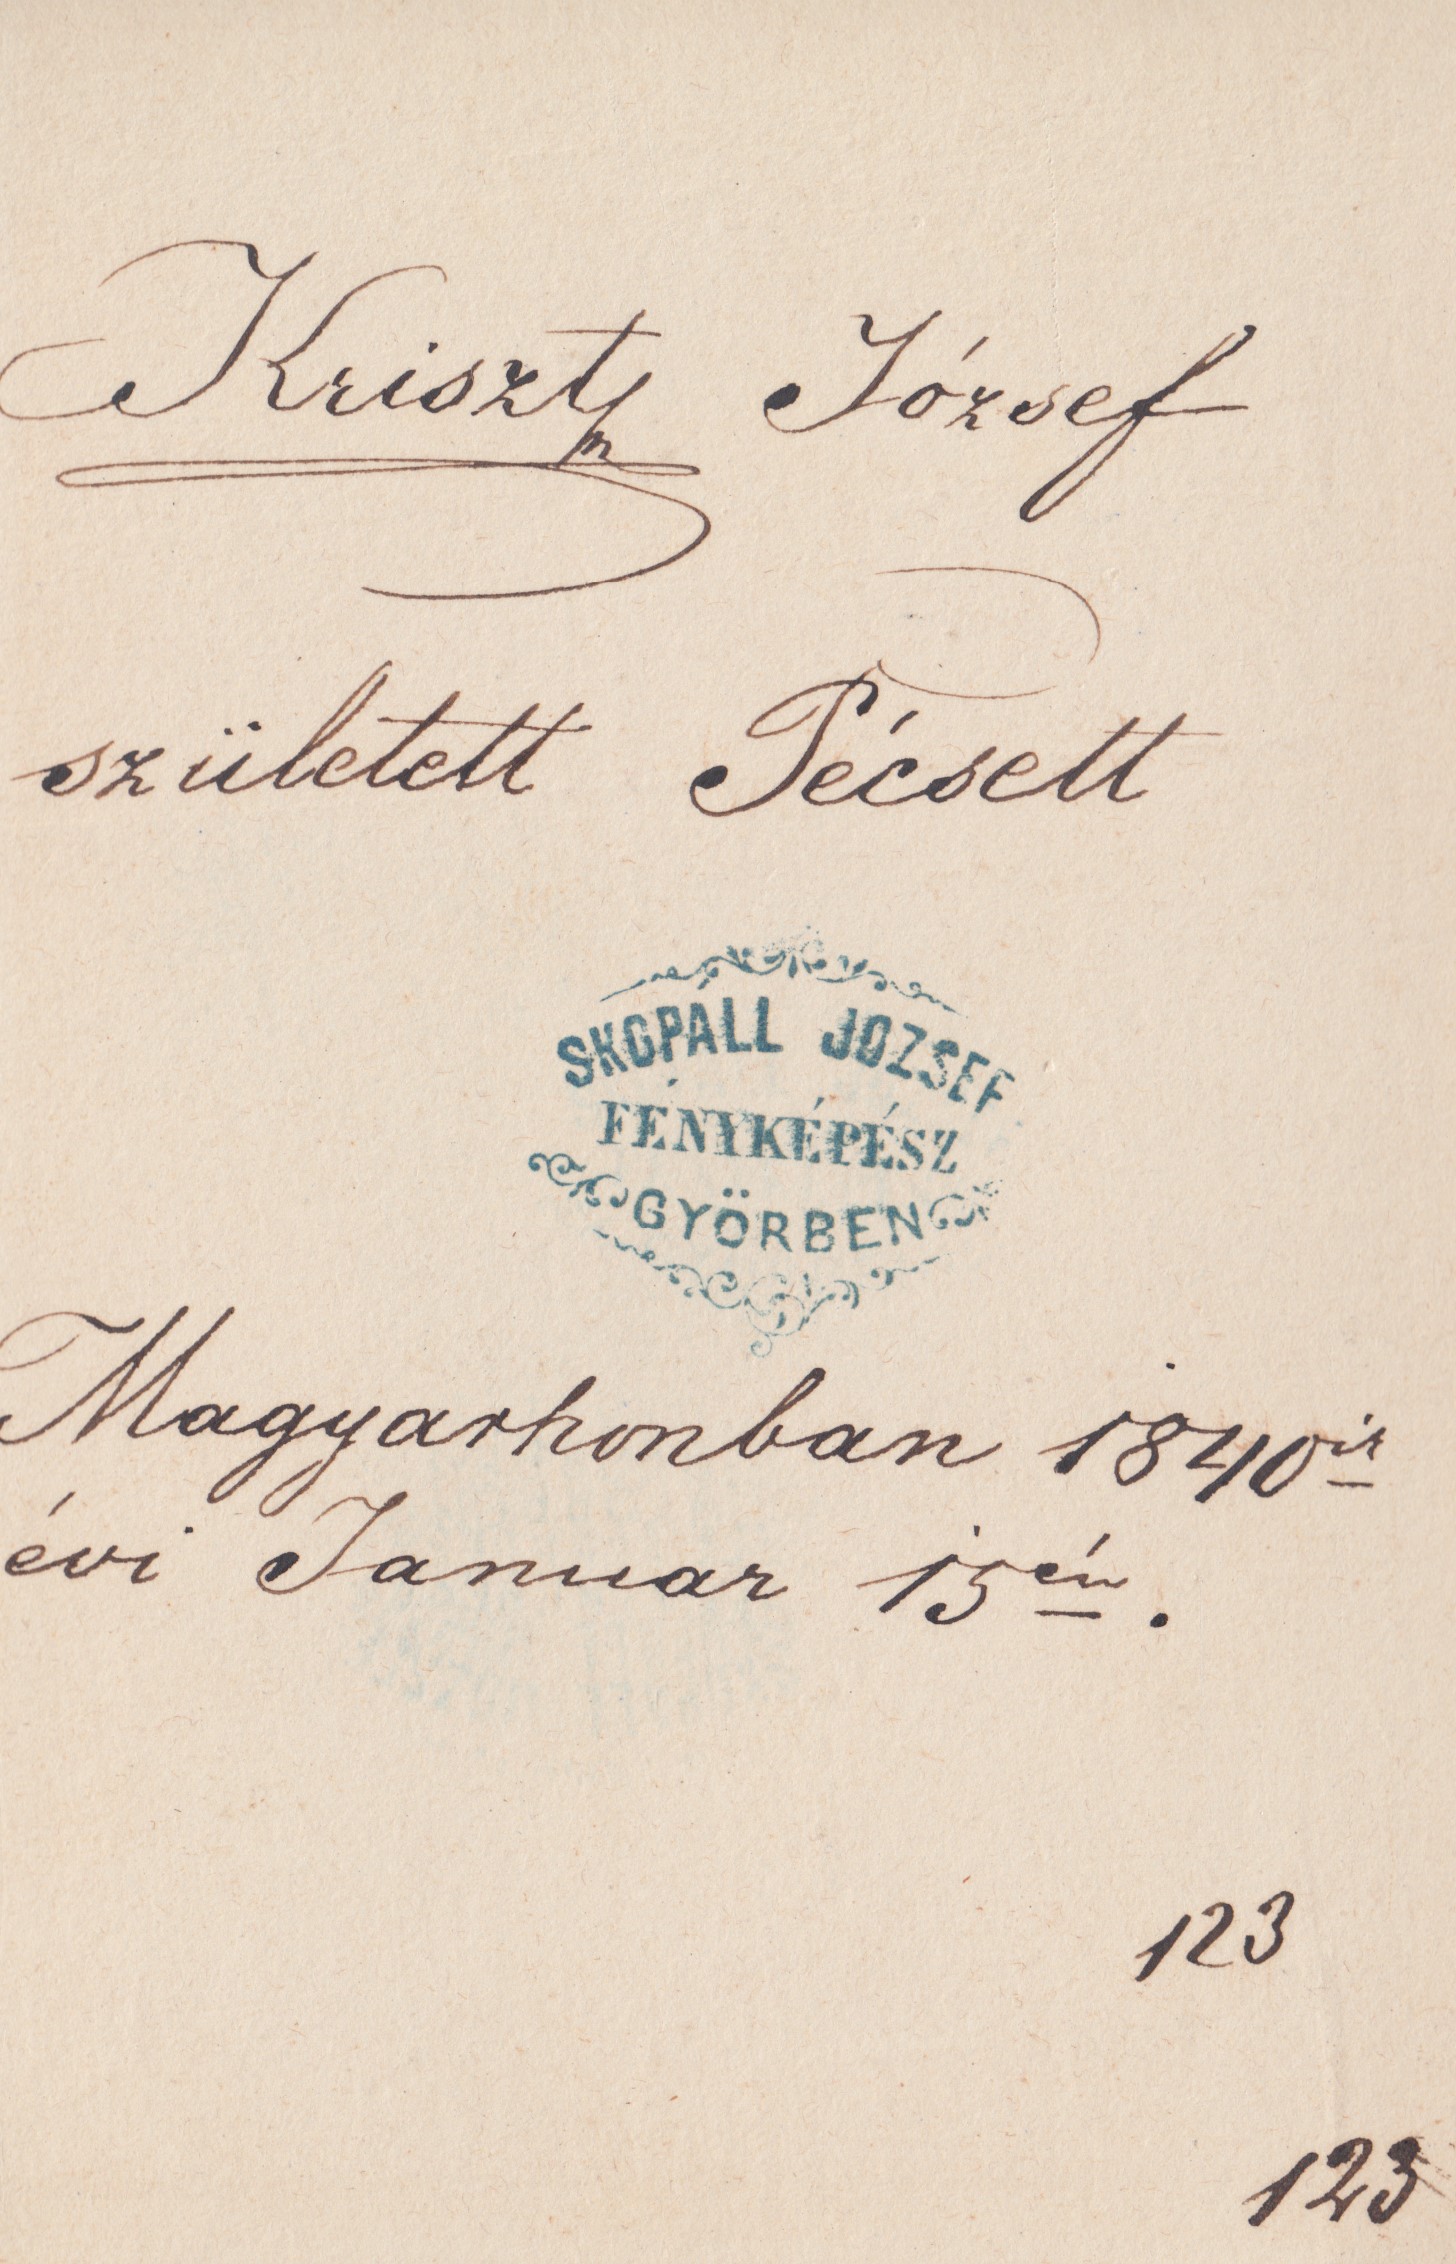 Kriszt József
született Pécsett
SKOPÁLL JOZSEF
FÉNYKÉPÉSZ
GYÖRBEN
Magyarhonban 1840ik
évi Januar 15én.
123
123